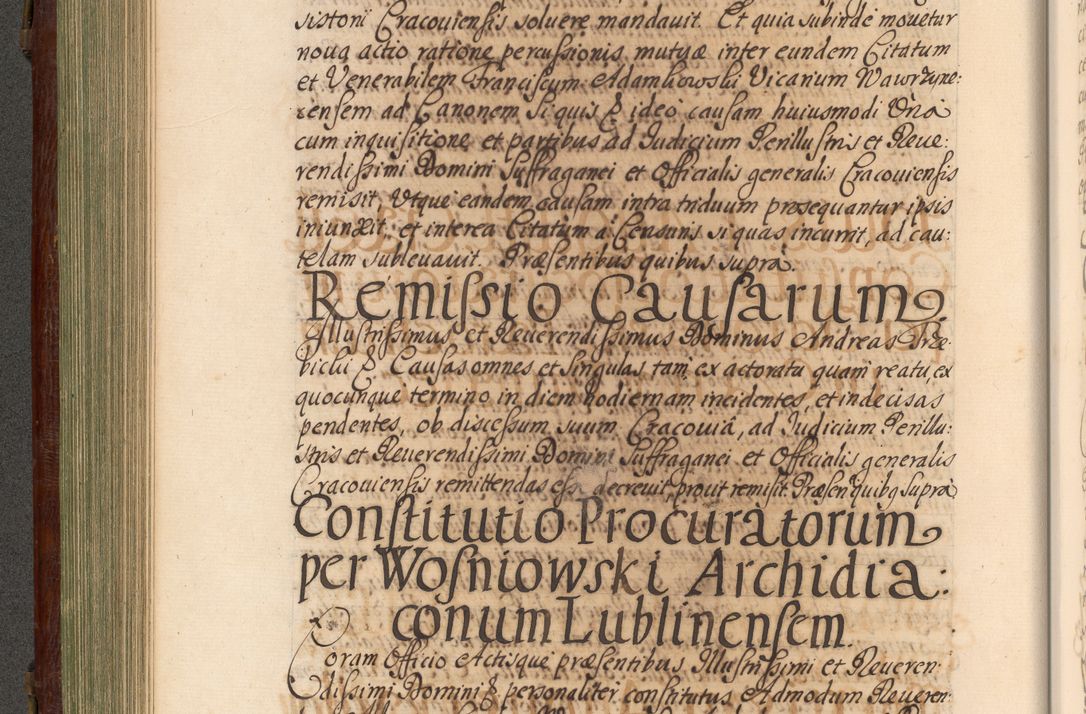 sistorii Cracoviensis soluere mandauit. Et quia subinde mouetur
noua actio ratione percussionis mutuæ inter eundem Citatum
et Venerabilem Franciscum Adamkowski Vicarium Wawrzyne:
censem ad Canonem Si quis & ideo causam huiusmodi Vna
cum inquisitione et partibus ad Judicium Perillustris et Reue:
rendissimi Domini Suffraganei et Officialis generalis Cracouiensis
remisit, Vtque eandem causam intra triduum prosequantur ipsis
iniunxit, et interea Citatum à Censuris si quas incurrit, ad cau:
telam subleuauit. Præsentibus quibus supra.
Remissio Causarum
Illustrissimus et Reuerendissimus Dominus Andreas Træ:
bicki & Causas omnes et singulas tam ex actoratu quam reatu, ex
quocunque termino in diem hodiernam incidentes, et indecisas
pendentes, ob discessum suum Cracouiâ, ad Judicium Perillu:
stris et Reuerendissimi Domini Suffraganei et Officialis generalis
Cracouiensis remittendas esse decreuit, prout remisit Præsen quibq supra
Constitutio Procuratorum
per Wosniowski Archidia:
conum Lublinensem.
Coram Officio Actisque præsentibus Illustrissimi et Reueren:
dissimi Domini & personaliter constitutus Admodum Reueren: